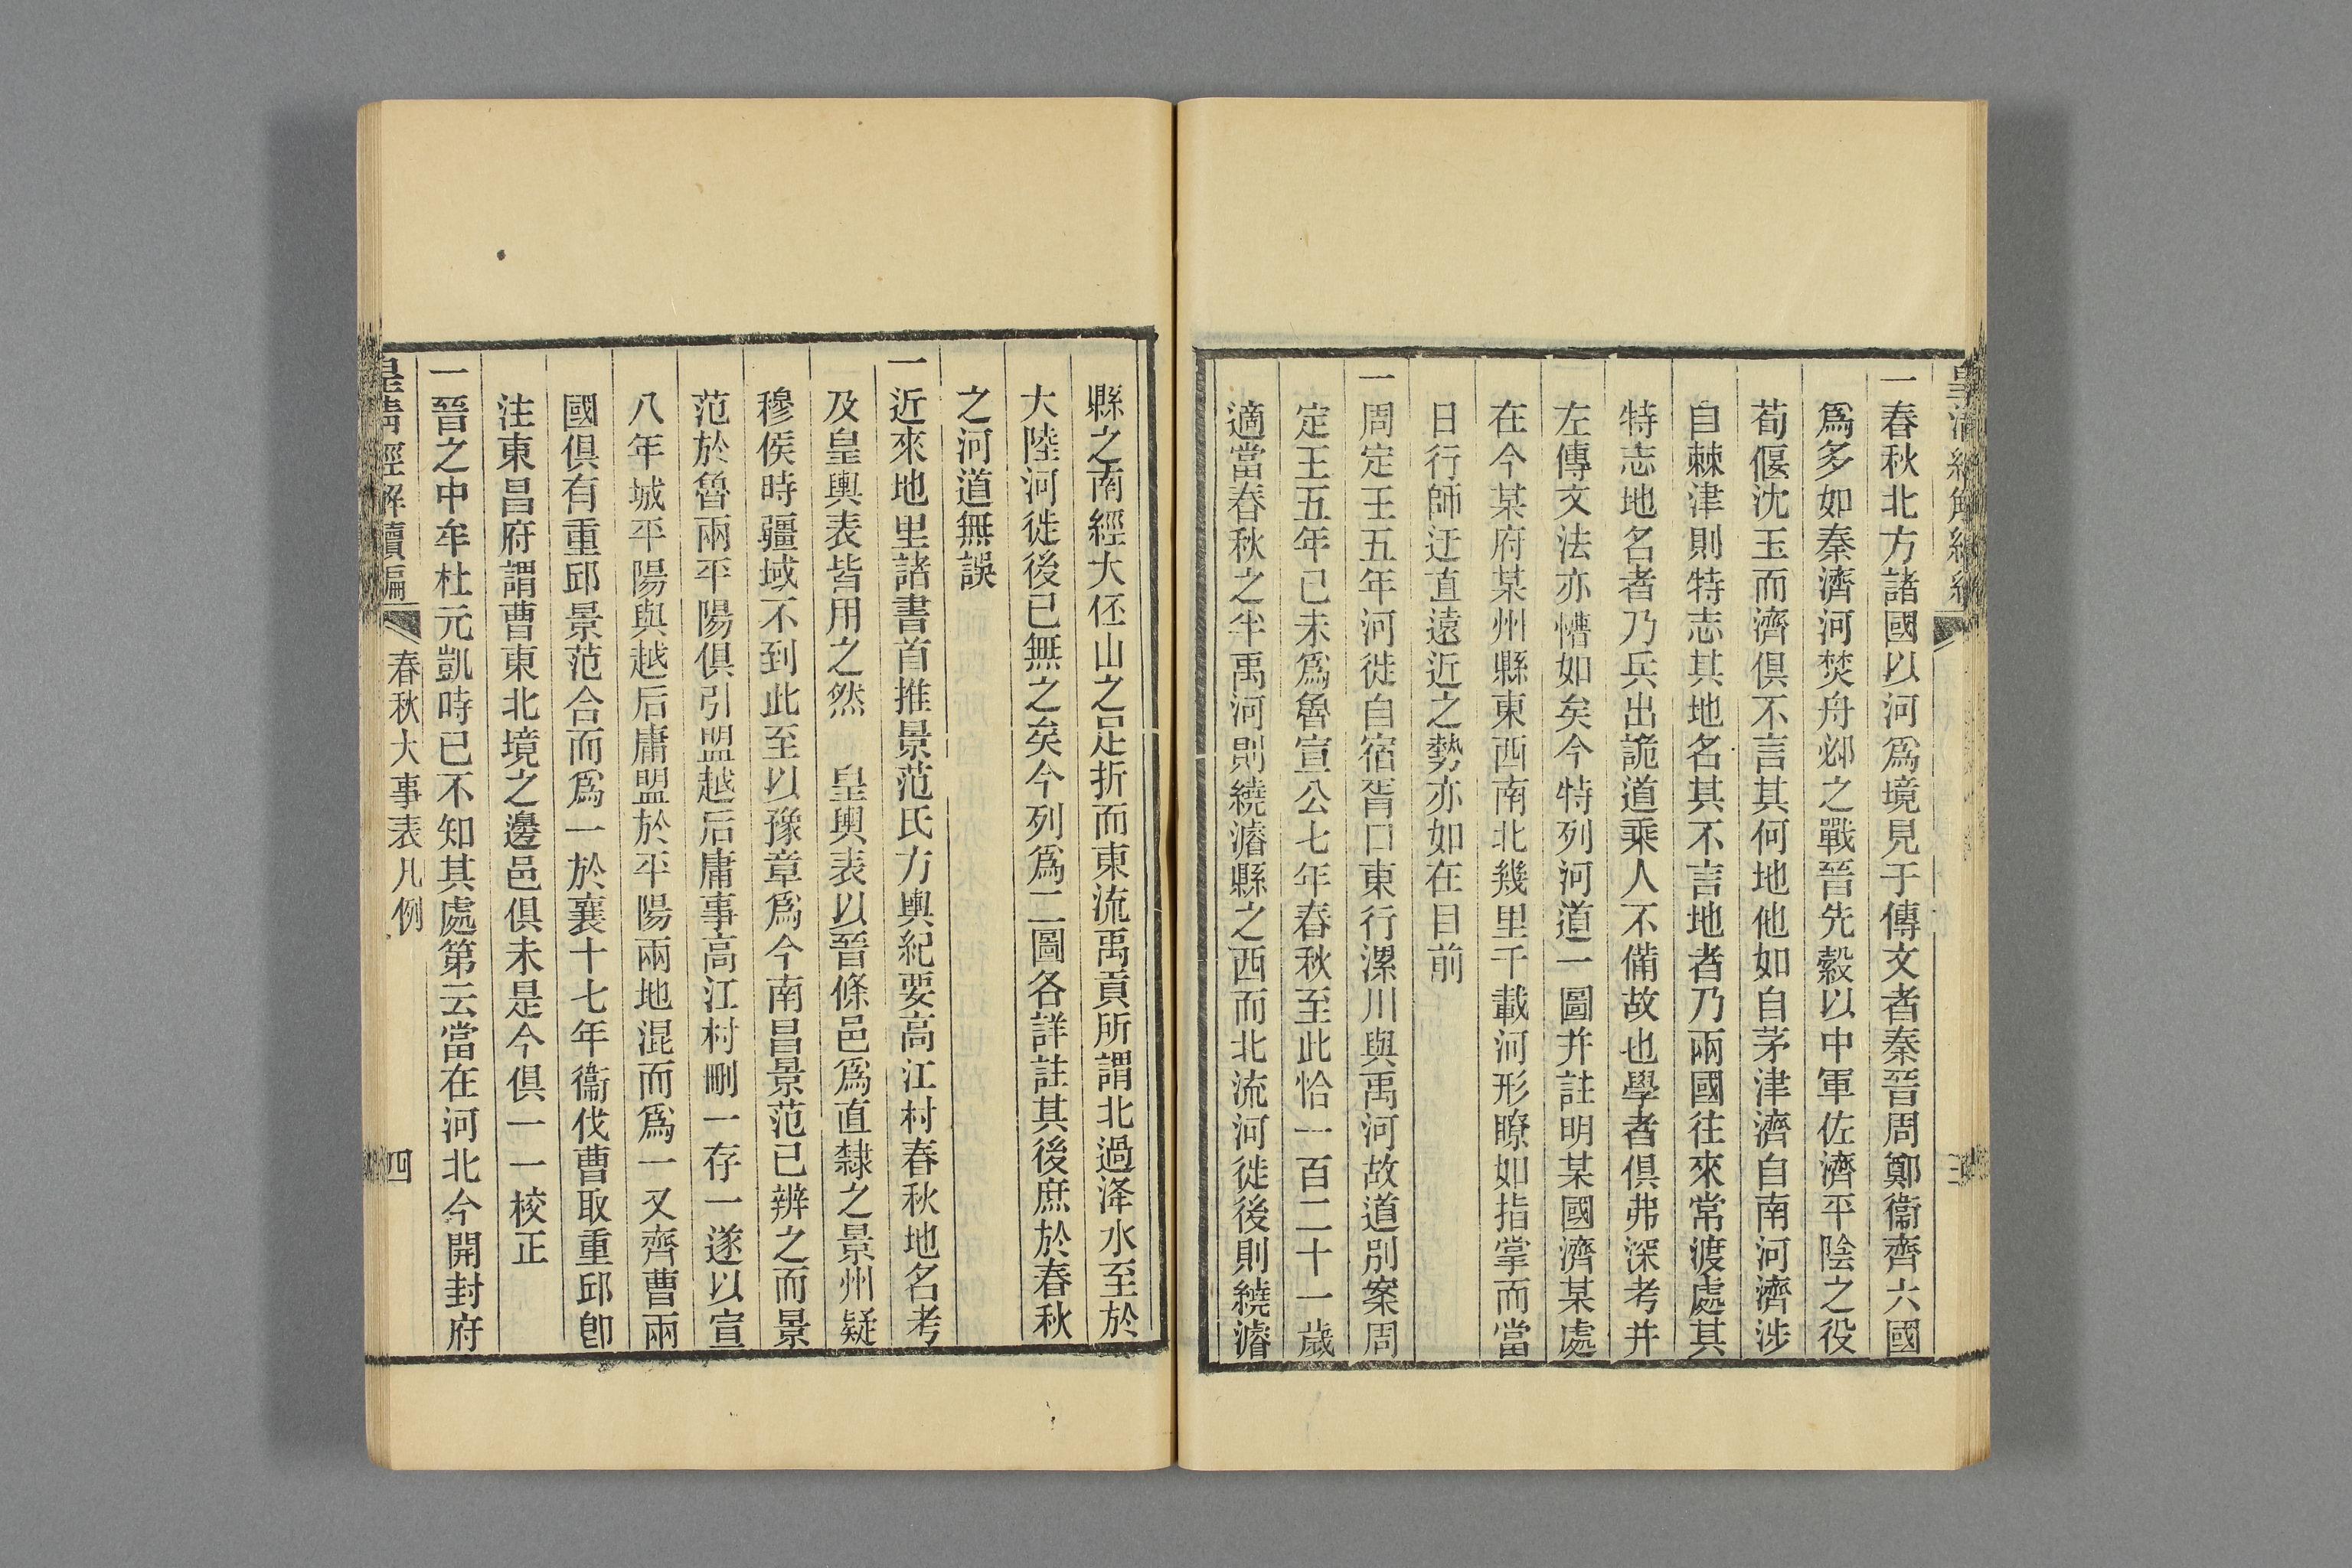 一春秋北方諸國以河爲境見于傳文者秦晉周鄭衞齊六國
爲多如秦濟河焚舟邲之戰晉先縠以中軍佐濟平陰之役
荀偃沈玉而濟俱不言其何地他如自茅津濟自南河濟涉
自棘津則特志其地名其不言地者乃兩國往來常渡處其
特志地名者乃兵出詭道乘人不備故也學者俱弗深考并
左傳文法亦懵如矣今特列河道一圖幷註明某國濟某處
在今某府某州縣東西南北幾里千載河形瞭如指掌而當
日行師迂直遠近之勢亦如在目前
一周定王五年河徙自宿胥口東行漯川與禹河故道別案周
定王五年己未爲魯宣公七年春秋至此恰一百二十一歲
適當春秋之半禹河則繞濬縣之西而北流河徙後則繞濬
縣之南經大伾山之足折而東流禹貢所謂北過洚水至於
大陸河徙後已無之矣今列爲二圖各詳註其後庶於春秋
之河道無誤
一近來地里諸書首推景范氏方輿紀要高江村春秋地名考
及皇輿表皆用之然 皇輿表以晉條邑爲直隸之景州疑
穆侯時疆域不到此至以豫章爲今南昌景范已辨之而景
范於魯兩平陽俱引盟越后庸事高江村刪一存一遂以宣
八年城平陽與越后庸盟於平陽兩地混而爲一又齊曹兩
國俱有重邱景范合而爲一於襄十七年衞伐曹取重邱卽
注東昌府謂曹東北境之邊邑俱未是今俱一一校正
一晉之中牟杜元凱時已不知其處第云當在河北今開封府
皇清經解續編 春秋大事表凡例 四